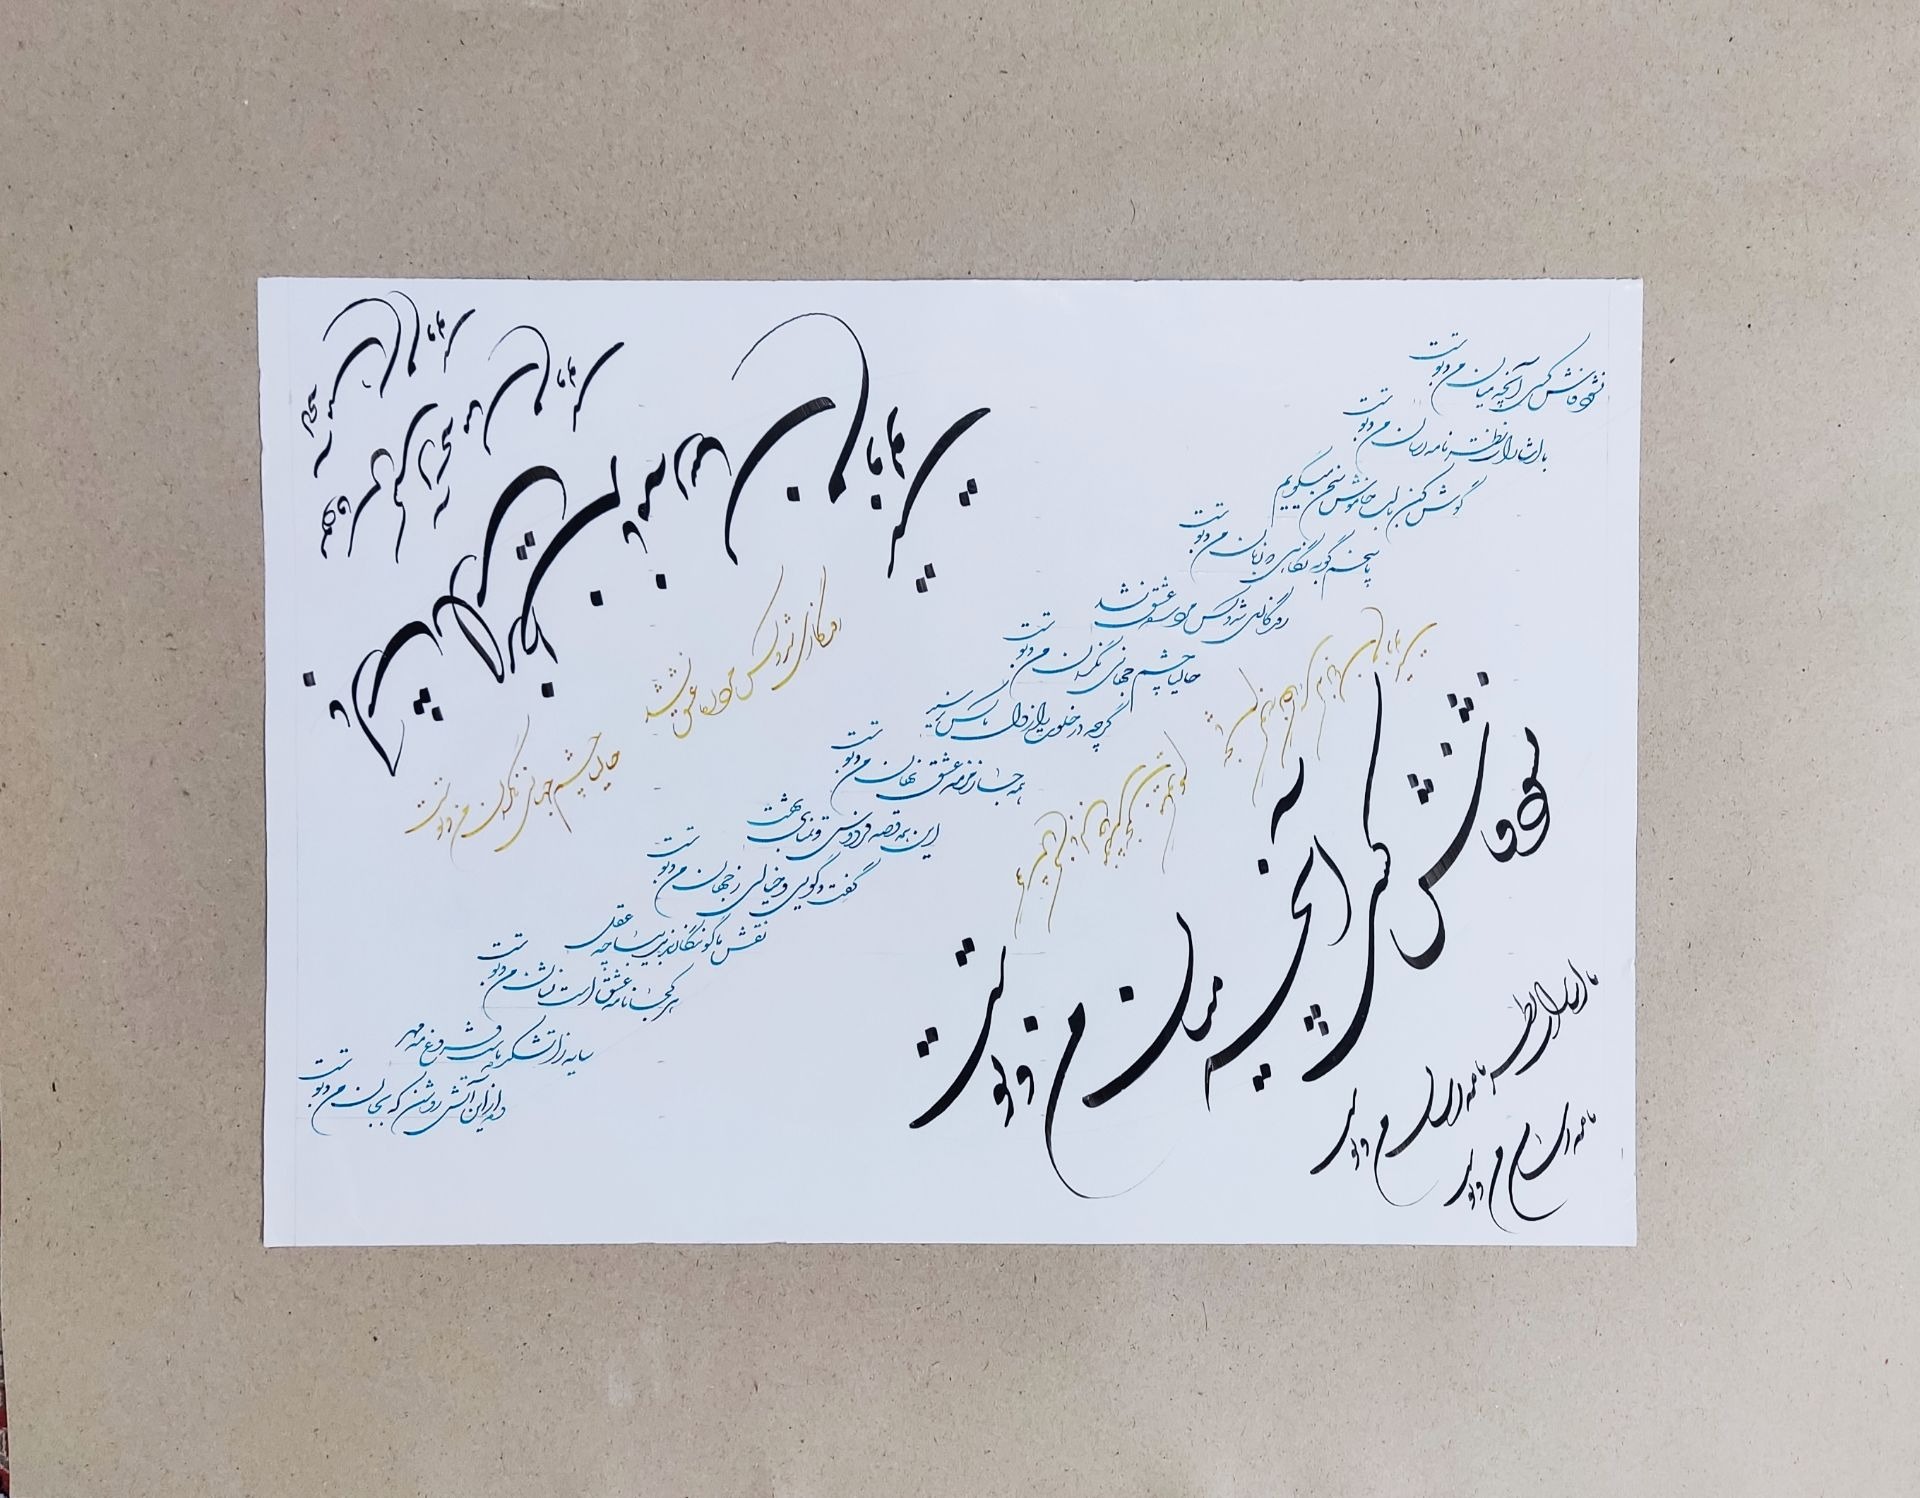 نشود فاش کسی آنچه میان من و توست
تا اشارات نظر نامه رسان من و توست
گوش کن با لب خاموش سخن میگویم
پاسخم گو به نگاهی که زبان من و توست
روزگاری شد و کس مرد ره عشق ندید
حالیا چشم جهانی نگران من و توست
گرچه در خلوت راز دل ما کس نرسید
همه جا زمزمه عشق نهان من و توست
این همه قصه فردوس و تمنای بهشت
گفت و گویی و خیالی ز جهان من و توست
نقش ما گو ننگارند به دیباچه عقل
هر کجا نامه عشق است نشان من و توست
سایه ز آتشکده ماست فروغ مه و مهر
وه از این آتش روشن که به جان من و توست
نشود فاش کسی آنچه میان من و توست
تا اشارات نظر نامه رسان من و توست
روزگاری شد و کس مرد ره عشق
حالیا چشم جهانی نگران من و توست
تا اشارات نظر نامه رسان من و توست
نامه رسان من و توست